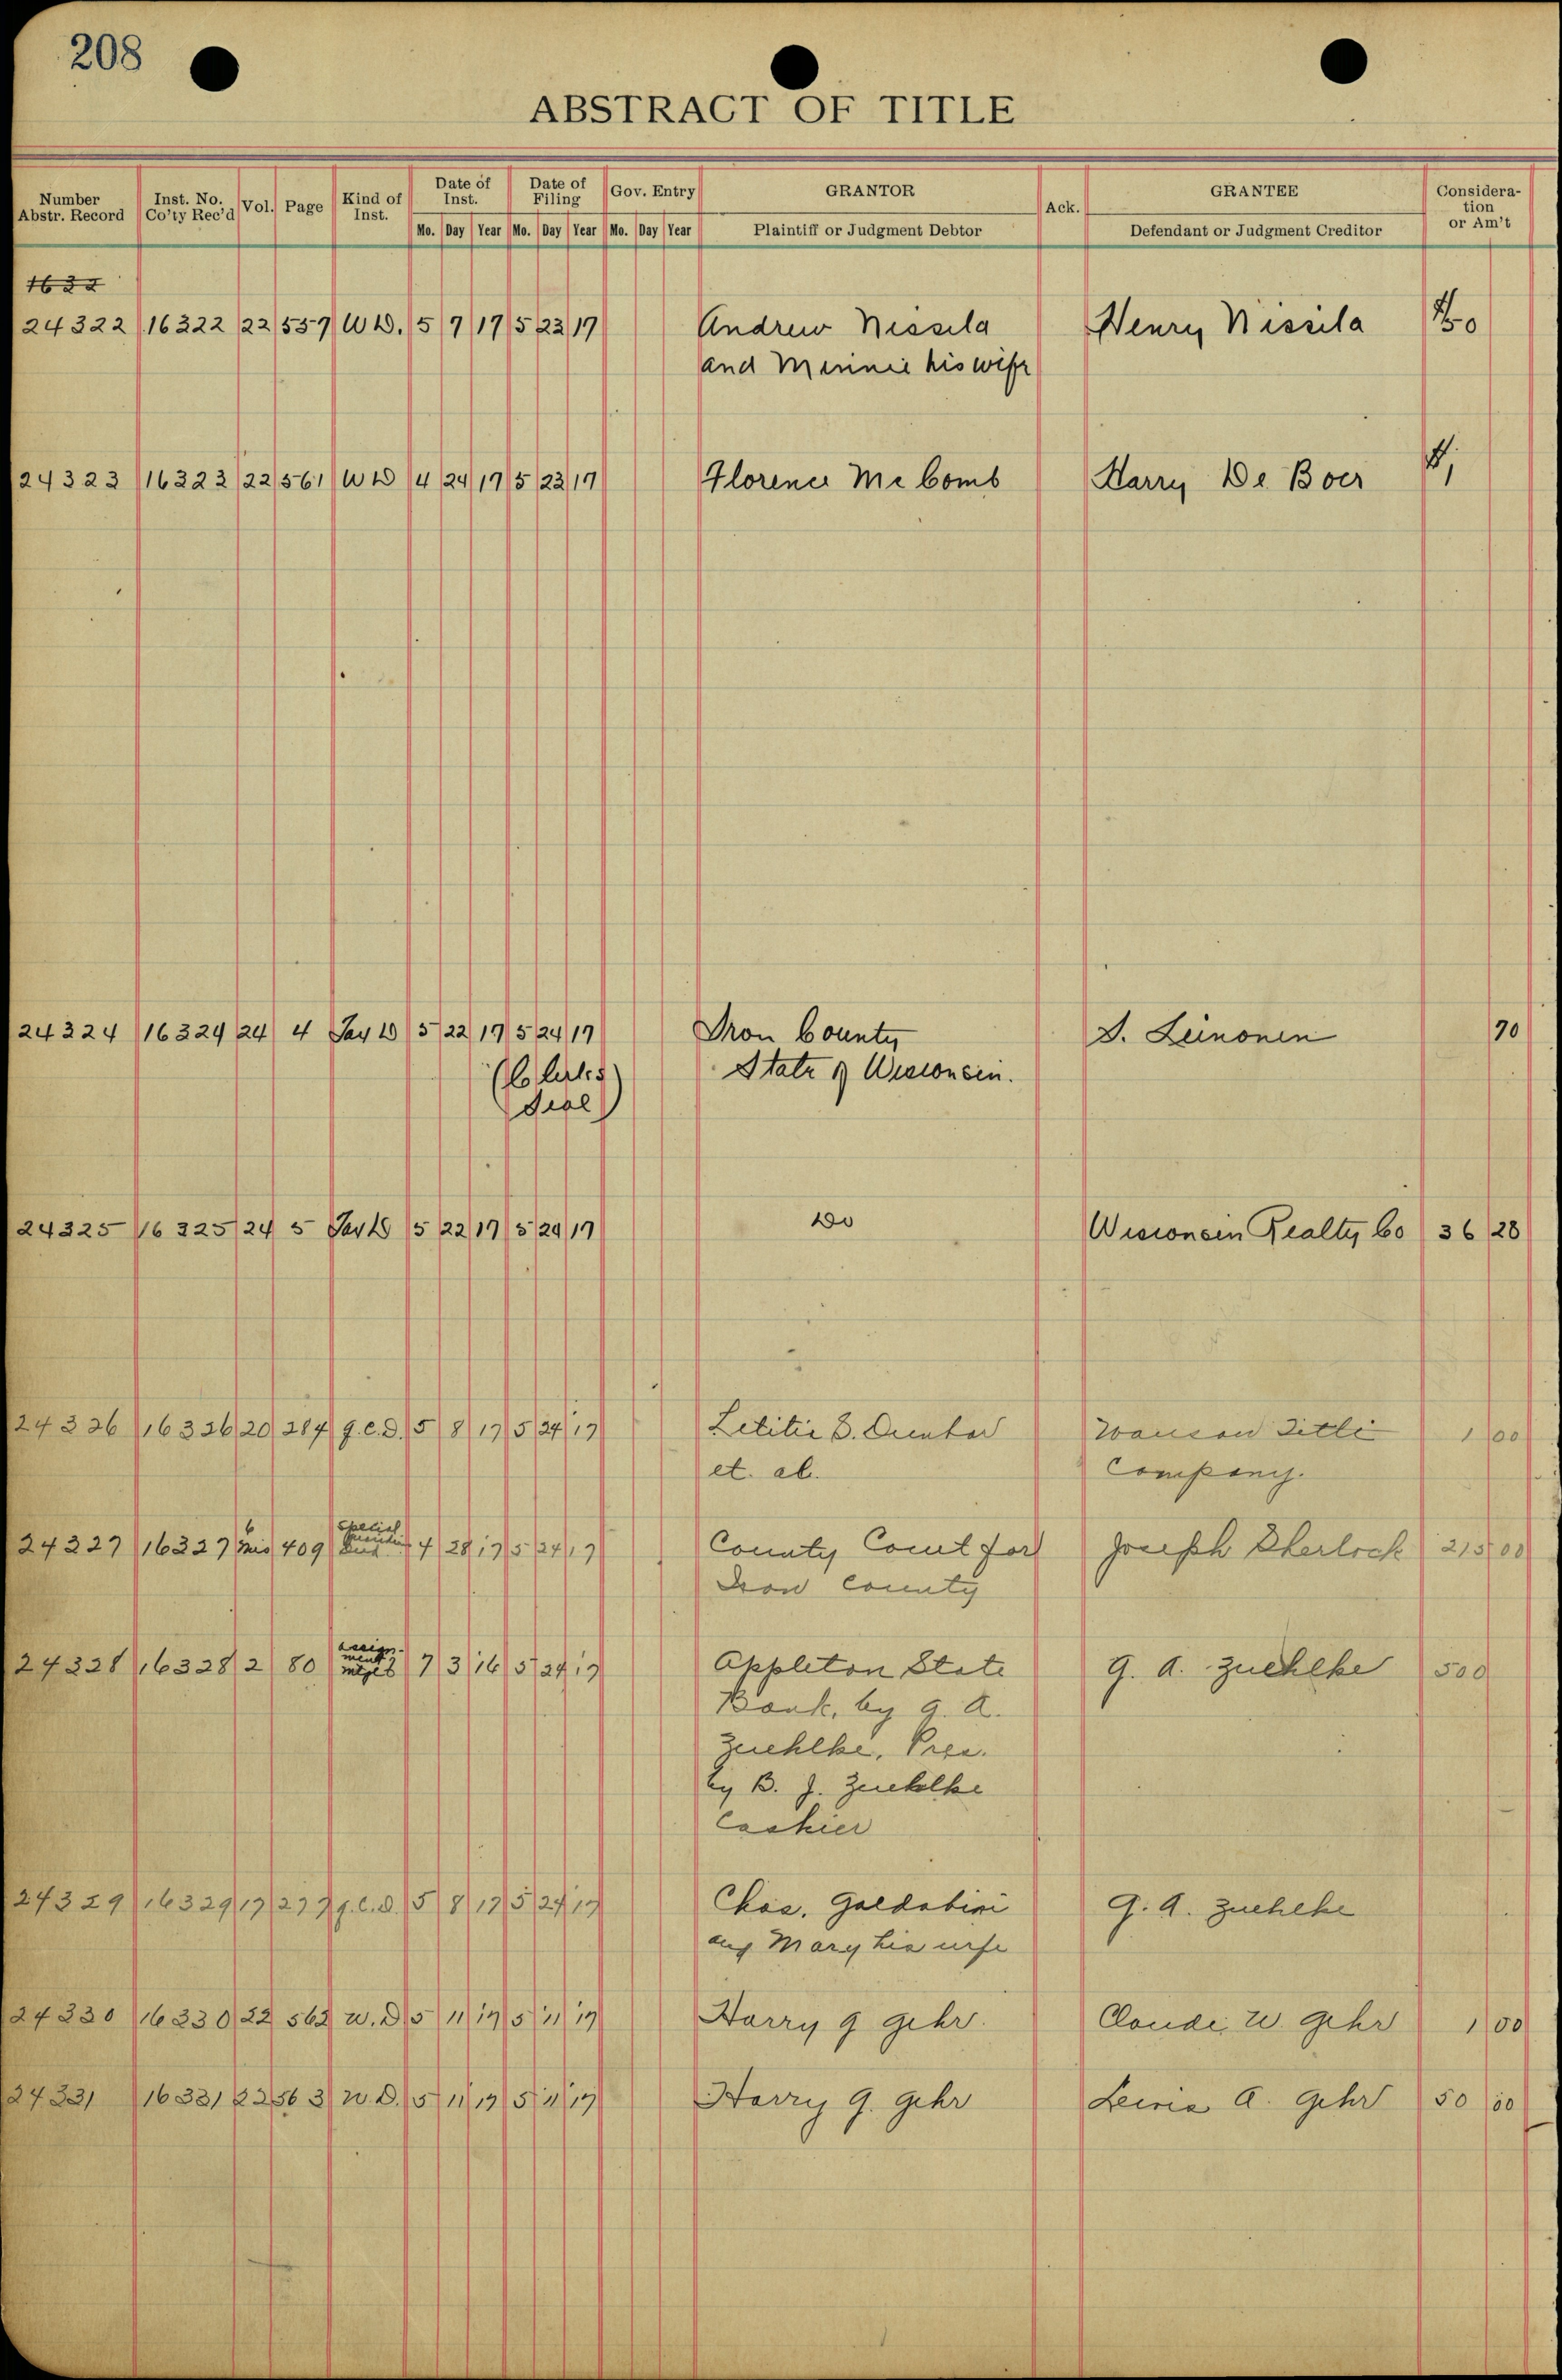 208
ABSTRACT OF TITLE
Number Abstr. Record | Inst. No. Co'ty Rec'd | Vol. | Page | Kind of Inst. | Date of Inst. | Date of Filing | Gov. Entry | GRANTOR | Ack. | GRANTEE | Consideration or Am't
Mo. Day Year Mo. Day Year Mo. Day Year Plaintiff or Judgment Debtor Defendant or Judgment Creditor
1632
24322 16322 22 557 W D. 5 7 17 5 23 17 Andrew Nissila Henry Nissila
and Minnie his wife
24323 16323 22 561 W D 4 24 17 5 23 17 Florence Mc Comb Harry De Boer
24324 16324 24 4 Tax D 5 22 17 5 24 17 Iron County S. Leinonen 70
(Co Clerks State of Wisconsin.
Seal)
24325 16325 24 5 Tax D 5 22 17 5 24 17 Do Wisconsin Realty Co 36 28
24326 16326 20 284 q.c.D. 5 8 17 5 24 17 Letitia S. Dunbar Wausau Title 1 00
et. al. Company.
24327 16327 6 Mis 409 Special 4 28 17 5 24 17 County Court for Joseph Sherlock 215 00
Iron County
24328 16328 2 80 assignment mtges 7 3 16 5 24 17 Appleton State G. A. Zuehlke 500
Bank, by G. A.
Zuehlke, Pres.
by B. J. Zuehlke
Cashier
24329 16329 17 277 q.c.d. 5 8 17 5 24 17 Chas. Goldabini G. A. Zuehlke
and Mary his wife
24330 16330 22 562 W. D 5 11 17 5 11 17 Harry G Gehr. Claude W Gehr 1 00
24331 16331 22 563 W D. 5 11 17 5 11 17 Harry G. Gehr A. Gehr 50 00